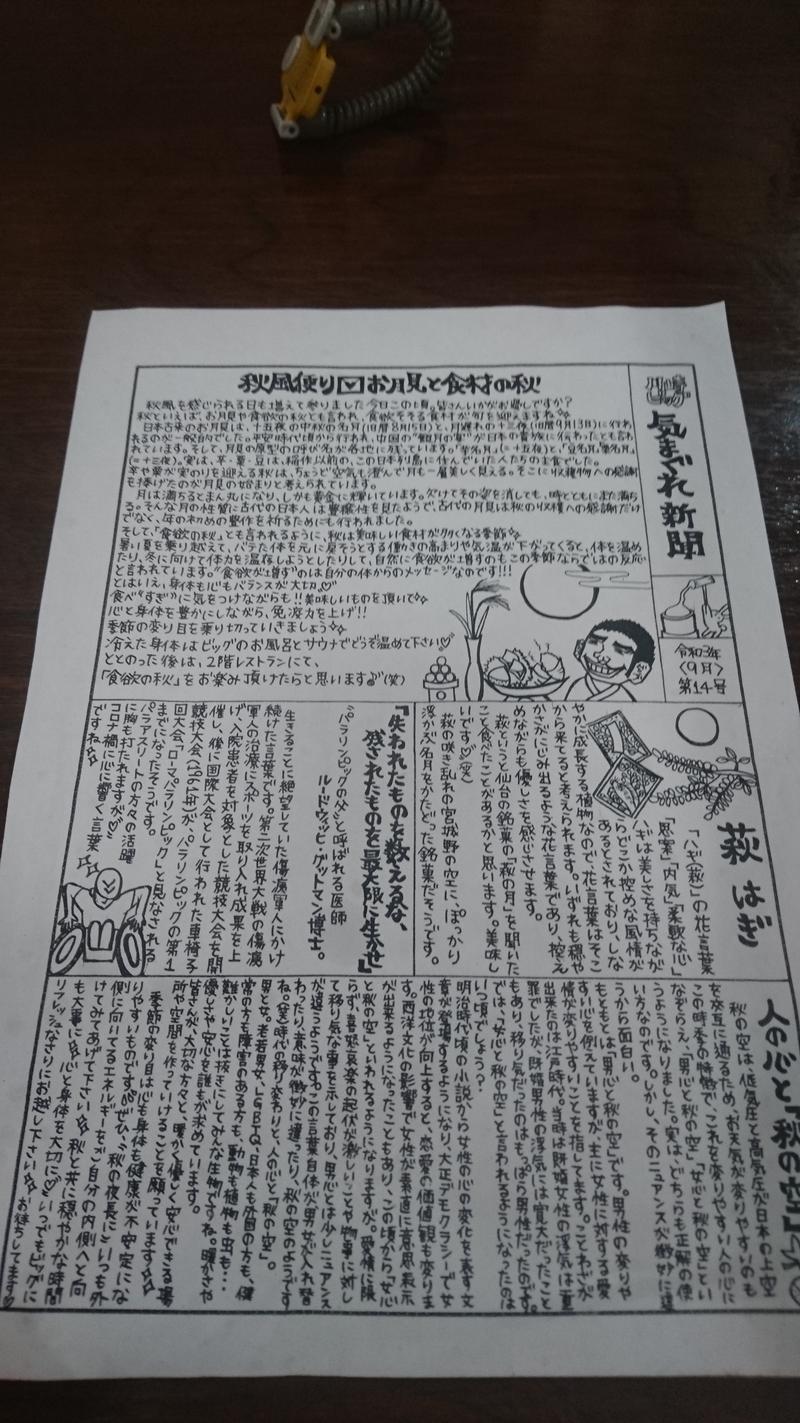 気まぐれ新聞
令和3年
〈9月〉
第14号
秋風便り お月見と食材の秋
秋風を感じられる日も増えて参りました今日この頃。皆さんいかがお過しですか?
秋といえば、お月見や食欲の秋とも言われ、食欲そそる食材が旬を迎えますね
日本古来のお月見は、十五夜の中秋の名月(旧暦8月15日)と、月遅れの十三夜(旧暦9月13日)に行わ
れるのが一般的でした。平安時代頃から行われ、中国の"観月の宴"が日本の貴族に行わったとも言わ
れています。そして、月見の原型の呼び名が各地に残っています。「芋名月」(=十五夜)と、「豆名月、栗名月」
(=十三夜)。実は、芋・栗・豆は、稲作以前の、この日本列島に住んでいた人たちの主食でした。
芋や栗が実のりを迎える秋は、ちょうど空気も澄んで月も一層美しく見える。そこに収穫物への感謝
も捧げたのが月見の始まりと考えられています。
月は満ちるとまん丸になり、しかも黄金に輝いています。欠けてその姿を消しても、時とともにまた満ち
る。そんな月の性質に古代の日本人は警穣性を見たようで、古代の月見は秋の収穫への感謝だけ
でなく、年の初めの豊作を祈るためにも行われました。
そして、「食欲の秋」とも言われるように、秋は美味しい食材が多くなる季節
暑い夏を乗り越えて、バテた体を元に戻そうとする働きの高まりや気温が下がってくると、体を温め
たり、冬に向けて体力を温存しようとしたりして、自然に食欲が増すのもこの季節ならではの反応
と言われています。"食欲が増す"のは自分の体からのメッセージなのです!!!
とはいえ、身体も心もバランスが大切♡
食べ"すぎ"に気をつけながらも!!美味しいものを頂いて
心と身体を豊かにしながら、免疫力を上げ!!
季節の変り目を乗り切っていきましょう
冷えた身体はビッグのお風呂とサウナでどうぞ温めて下さい
ととのった後は、2階レストランにて、
「食欲の秋」をお楽み頂けたらと思います(笑)
萩 はぎ
「ハギ(萩)」の花言葉
「思案」「内気」「柔軟な心」
ハギは美しさを持ちなが
らどこか控めな風情が
あるとされており、しな
やかに成長する植物なので、花言葉はそこ
から来てると考えられます。いずれも穏や
かさがにじみ出るような花言葉であり、控え
めながらも優しさを感じさせます。
萩というと仙台の銘菓の「萩の月」を聞いた
こと食べたことがあるかと思います。美味し
いです(笑)
萩の咲き乱れの宮城野の空に、ぽっかり
浮かぶ名月をかたどった銘菓だそうです。
「失われたものを数えるな、
残されたものを最大限に生かせ」
"パラリンピックの父"と呼ばれる医師
ルードウィッヒ・グットマン博士。
生きることに絶望していた傷痍軍人にかけ
続けた言葉です。第二次世界大戦の傷痍
軍人の治療にスポーツを取り入れ成果を上
げ、入院患者を対象とした競技大会を開
催し、後に国際大会として行われた車椅子
競技大会(1961年)が、パラリンピックの第1
回大会「ローマパラリンピック」と見なされる
までになったそうです。
パラアスリートの方々の活躍
に胸も打たれますが
コロナ禍に心に響く言葉
ですね
人の心と「秋の空」
秋の空は、低気圧と高気圧が日本の上空
を交互に通るため、お天気が変りやすいのも
この時季の特徴で、これを変りやすい人の心に
なぞらえ、「男心と秋の空」「女心と秋の空」とい
うようになりました。実は、どちらも正解の使
い方なのです。しかし、そのニュアンスが微妙に違
うから面白い。
もともとは「男心と秋の空」です。男性の変りや
すい心を例えていますが、主に女性に対する愛
情が変りやすいことを指してます。ことわざが
出来たのは江戸時代。当時は既婚女性の浮気は重
罪でしたが、既婚男性の浮気には寛大だったこと
もあり、移り気だったのはもっぱら男性だったのです。
では、「女心と秋の空」と言われるようになったのは
いつ頃でしょう?
明治時代頃の小説から女性の心の変化を表す文
章が登場するようになり、大正デモクラシーで女
性の地位が向上すると、恋愛の価値観も変りま
す。西洋文化の影響で女性が素直に意思表示
が出来るようになったこともあり、この頃から「女心
と秋の空」といわれるようになりますが。愛情に限
らず、喜怒哀楽の起伏が激しいことや物事に対し
て移り気な事を示しており、男心とは少しニュアンス
が違うようです。この言葉自体が男女が入れ替
わったり、意味が微妙に違ったり、秋の空のようです
ね。(笑)時代の移り変わりと、人の心と「秋の空」。
男と女。老若男女、LGBTQ、日本人も外国の方も、健
常の方も障害のある方も、動物も植物も虫も…
難かしいことは抜きにしてみんな生物ですね。暖かさや
優しさや安心を誰もが求めています。
皆さんが大切な方々と、暖かく優しく安心できる場
所や空間を作っていけることを願っています
季節の変り目は心も身体も健康が不安定にな
りやすいものです。ぜひ、"秋の夜長に"いつも外
側に向いてるエネルギーをご自分の内側へと向
けてみてあげて下さい 秋と共に穏やかな時間
も大事に 心と身体を大切に いつでもビッグに
リフレッシュなさりにお越し下さい お待ちしてます